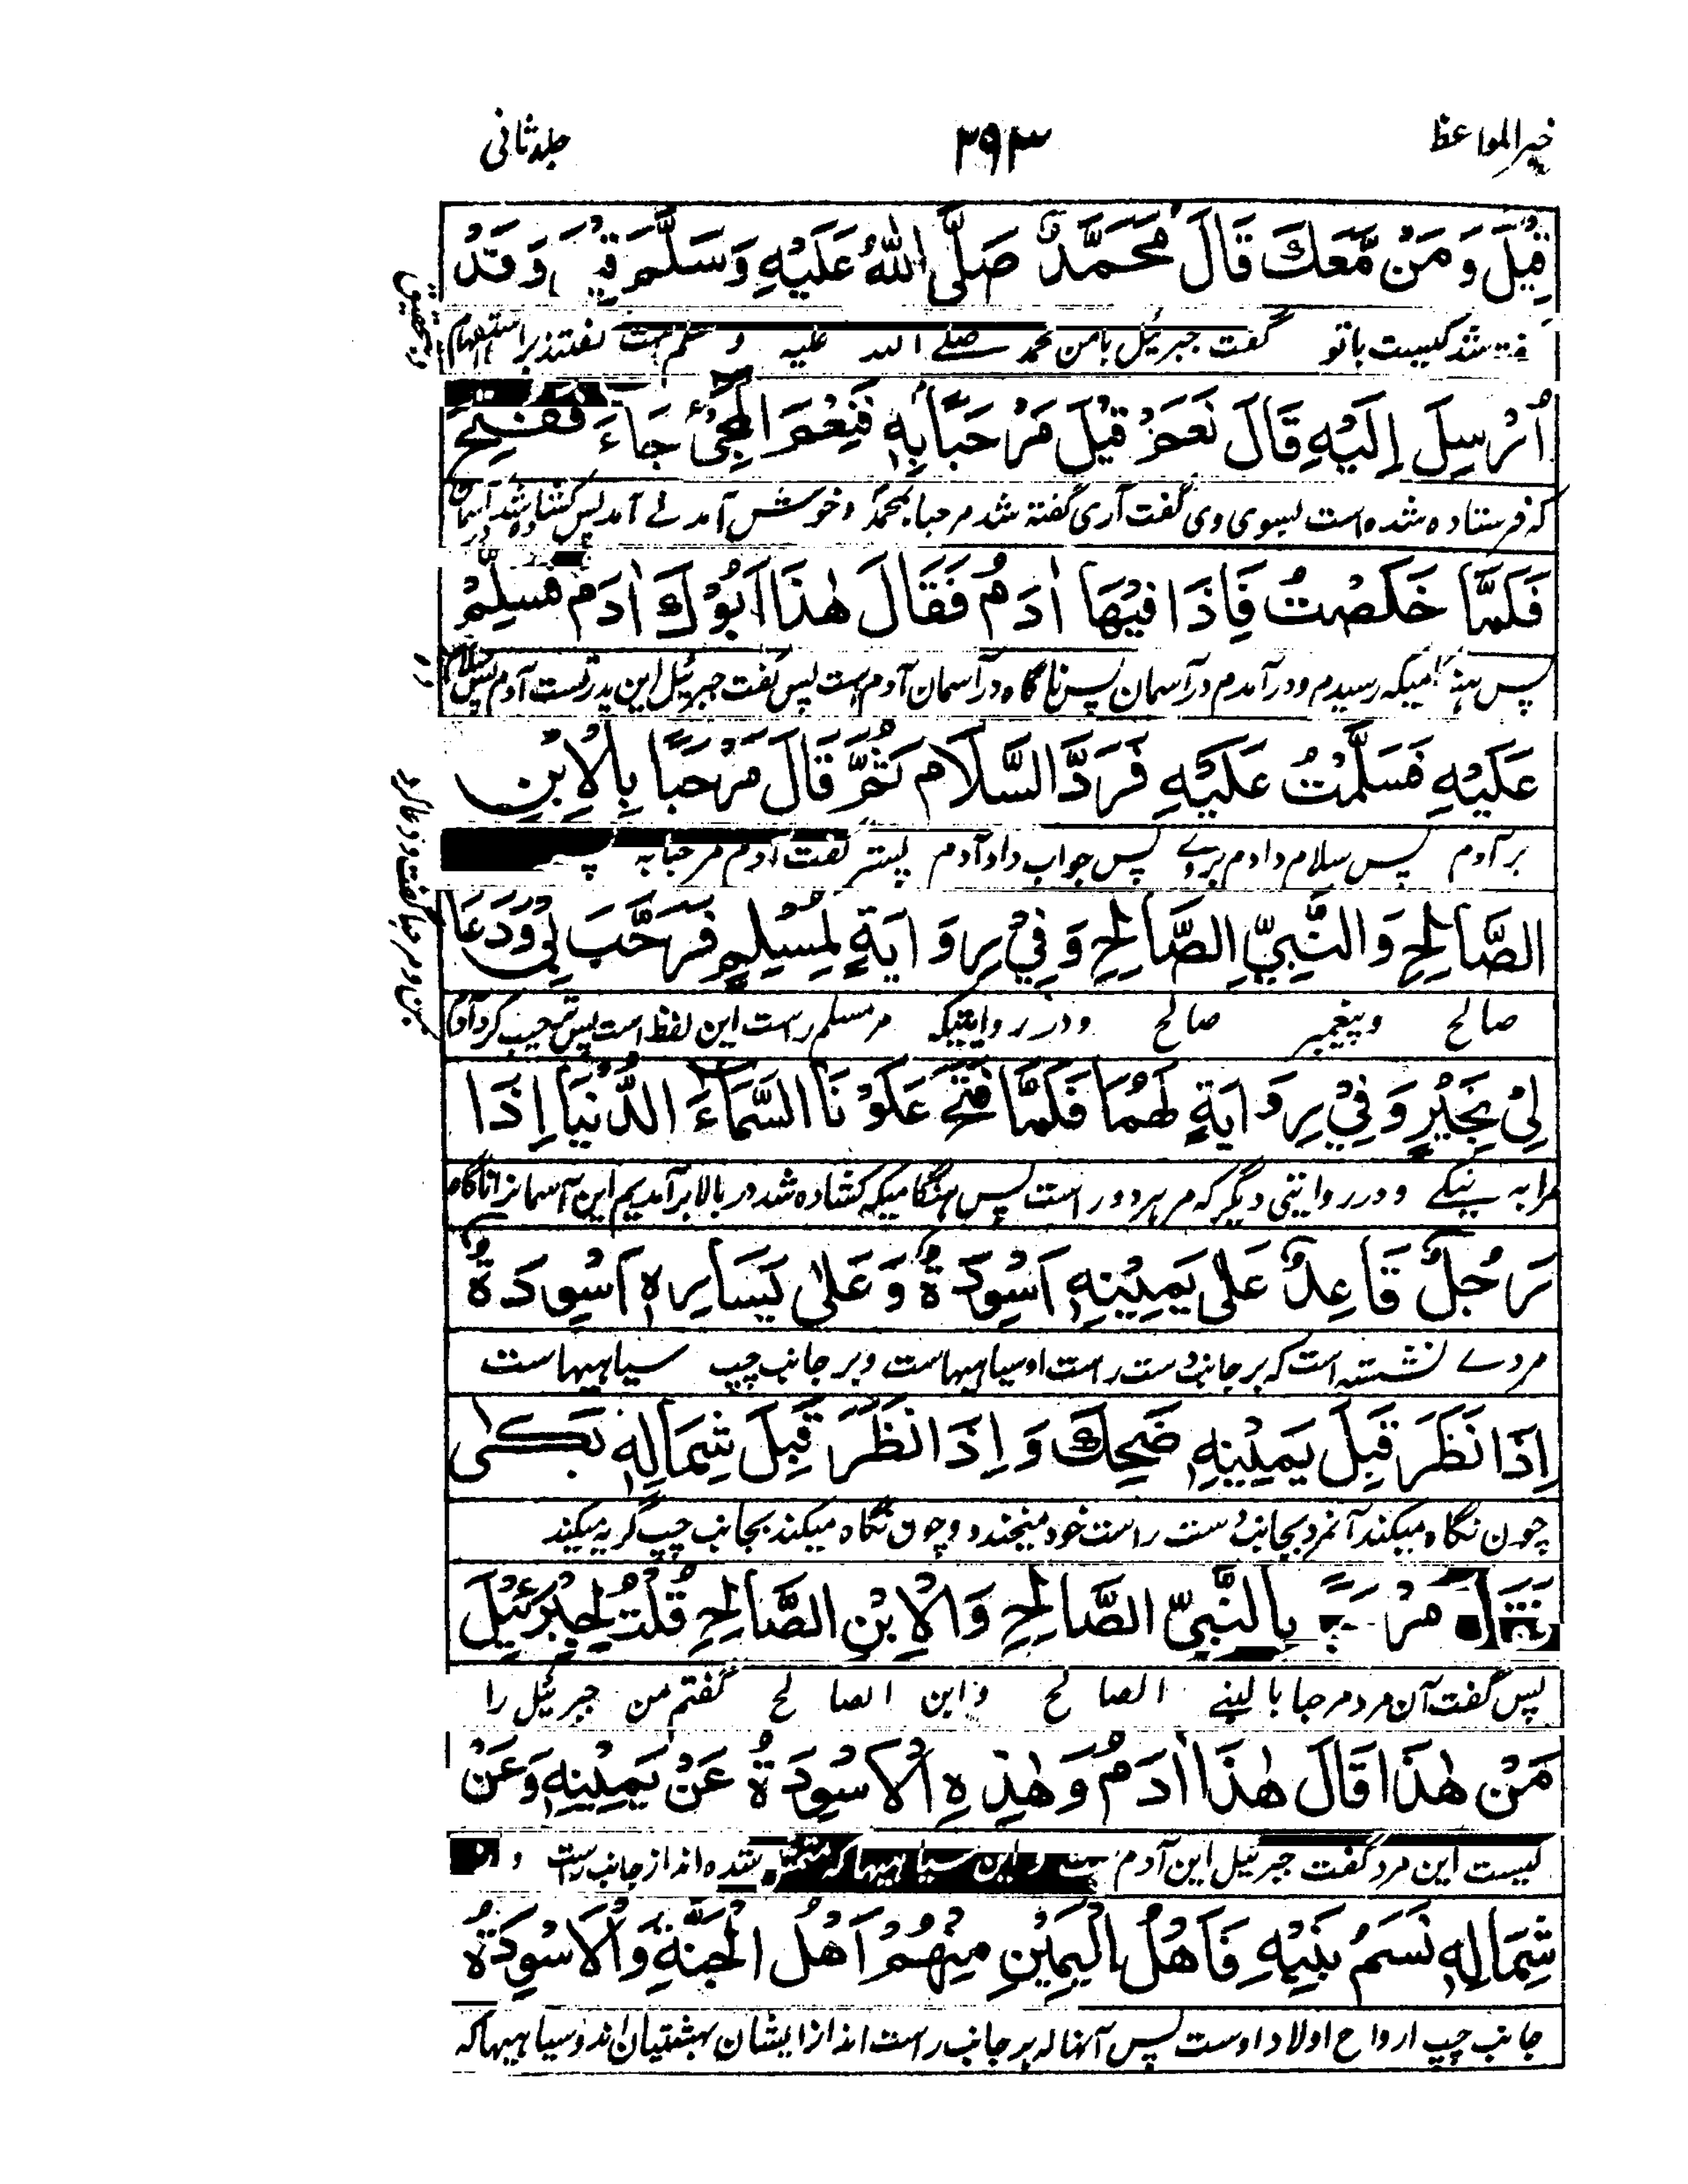 خیر المواعظ
۳۹۳
جلد ثانی
قِيْلَ وَمَنْ مَّعَكَ قَالَ مُحَمَّدٌ صَلَّى اللهُ عَلَيْهِ وَسَلَّمَ وَقَدْ
شد کیست باتو گفت جبرئیل بامن محمد صلے الله علیه و سلم است گفتند براستفهام
بتحقیق
اُرْسِلَ اِلَيْهِ قَالَ نَعَمْ قِيْلَ مَرْحَبًا بِهٖ فَنِعْمَ الْمَجِيْئُ جَاءَ فَفُتِحَ
که فرستاده شده است بسوی وی گفت آری گفته شد مرحبا بمحمد و خوش آمدنے آمد پس کشاده شد در آسمان
فَلَمَّا خَلَصْتُ فَاِذَا فِيْهَا اٰدَمُ فَقَالَ هٰذَا اَبُوْكَ اٰدَمُ فَسَلِّمْ
پس هنگامیکه رسیدم و درآمدم درآسمان پس ناگاه درآسمان آدم است پس گفت جبرئیل این پدر تست آدم پس سلام
عَلَيْهِ فَسَلَّمْتُ عَلَيْهِ فَرَدَّ السَّلَامَ ثُمَّ قَالَ مَرْحَبًا بِالْاِبْنِ
بر آدم پس سلام دادم بروے پس جواب داد آدم پستر گفت آدم مرحبا به
الصَّالِحِ وَالنَّبِيِّ الصَّالِحِ وَفِيْ رِوَايَةٍ لِمُسْلِمٍ فَرَحَّبَ بِيْ وَدَعَا
صالح و پیغمبر صالح و در روایتیکه مر مسلم راست این لفظ است پس ترحیب کرد آدم
لِيْ بِخَيْرٍ وَفِيْ رِوَايَةٍ لَهُمَا فَلَمَّا فُتِحَ عَلَوْنَا السَّمَاءَ الدُّنْيَا اِذَا
مرا به نیکے و در روایتی دیگر که مر هر دو راست پس هنگامیکه کشاده شد در بالا برآمدیم این آسمانرا ناگاه
رَجُلٌ قَاعِدٌ عَلٰى يَمِيْنِهٖ اَسْوِدَةٌ وَعَلٰى يَسَارِهٖ اَسْوِدَةٌ
مردے نشسته است که بر جانب دست راست او سیاهیهاست و بر جانب چپ سیاهیهاست
اِذَا نَظَرَ قِبَلَ يَمِيْنِهٖ ضَحِكَ وَاِذَا نَظَرَ قِبَلَ شِمَالِهٖ بَكٰى
چون نگاه میکند آنمرد بجانب دست راست خود میخندد و چون نگاه میکند بجانب چپ گریه میکند
بِالنَّبِيِّ الصَّالِحِ وَالْاِبْنِ الصَّالِحِ قُلْتُ لِجِبْرَئِيْلَ
پس گفت آن مرد مرحبا بالنبے الصالح و ابن الصالح گفتم من جبرئیل را
مَنْ هٰذَا قَالَ هٰذَا اٰدَمُ وَهٰذِهِ الْاَسْوِدَةُ عَنْ يَمِيْنِهٖ وَعَنْ
کیست این مرد گفت جبرئیل این آدم است و این سیاهیها که اند از جانب راست و
شِمَالِهٖ نَسَمُ بَنِيْهِ فَاَهْلُ الْيَمِيْنِ مِنْهُمْ اَهْلُ الْجَنَّةِ وَالْاَسْوِدَةُ
جانب چپ ارواح اولاد اوست پس آنها که بر جانب راست اند از ایشان بهشتیان اند و سیاهیها که